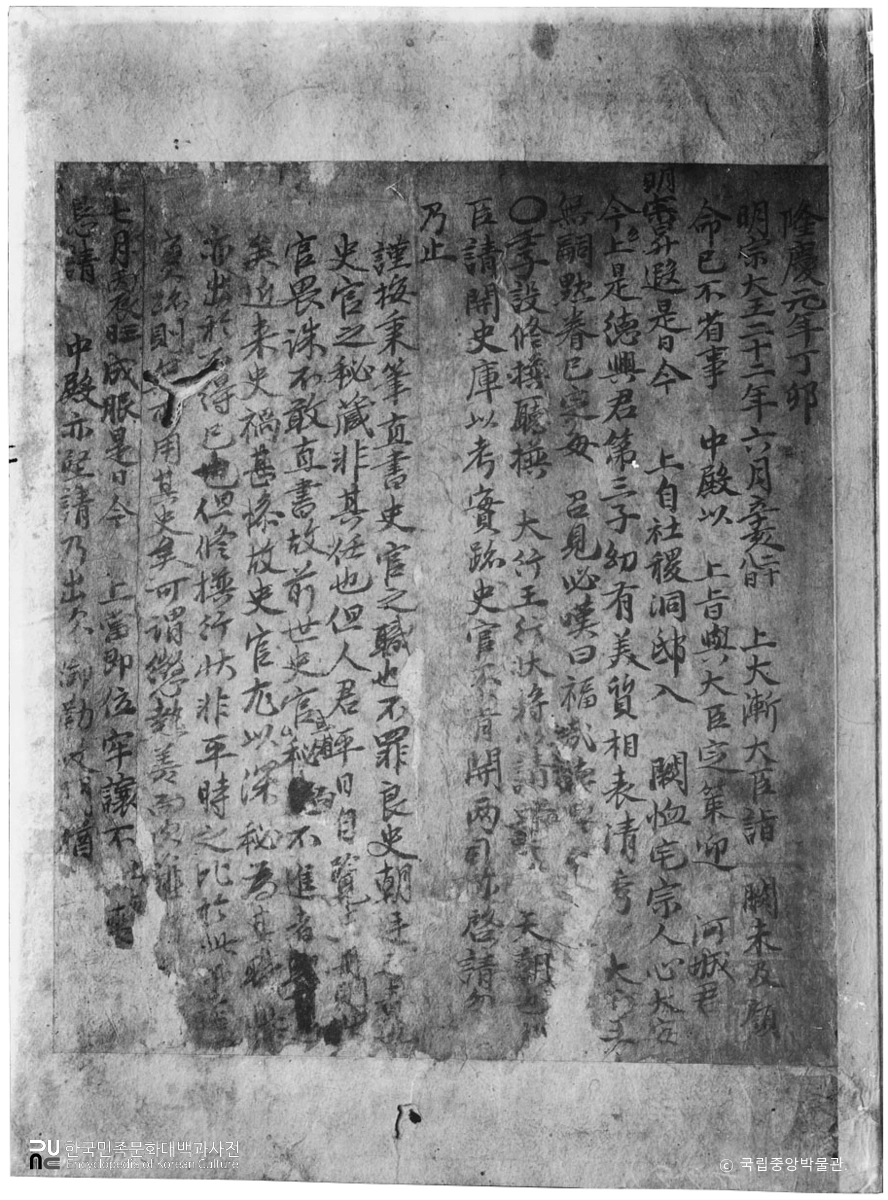 隆慶元年丁卯
明宗大王二十二年六月辛亥二十八日 上大漸大臣詣 闕未及顧
命已不省事 中殿以 上旨與大臣定策迎 河城君
明宗昇遐是日今 上自社稷洞邸入 闕恤宅宗人心大定
今上是德興君第三子幼有美質相表清秀 大行王
無嗣默眷已定每 召見必嘆曰福
○李設修撰廳撰 大行王行狀將以請 天朝
臣請開史庫以考實跡史官不肯開兩司亦啓請
乃止
謹按秉筆直書史官之職也不罪良史朝
史官之秘藏非其任也但人君平日自覽
官畏誅不敢直書故前世史官秘 不進者
矣近来史禍甚慘故史官尤以深秘為
亦出於不得已也但修撰行狀非平時之比於此
實跡則 用其史矣可謂懲熱羹而吹
七月丙辰旺成服是日今 上當即位牢讓不出
懇請 中殿亦堅請乃出 御
한국민족문화대백과사전
Encyclopedia of Korean Culture
© 국립중앙박물관